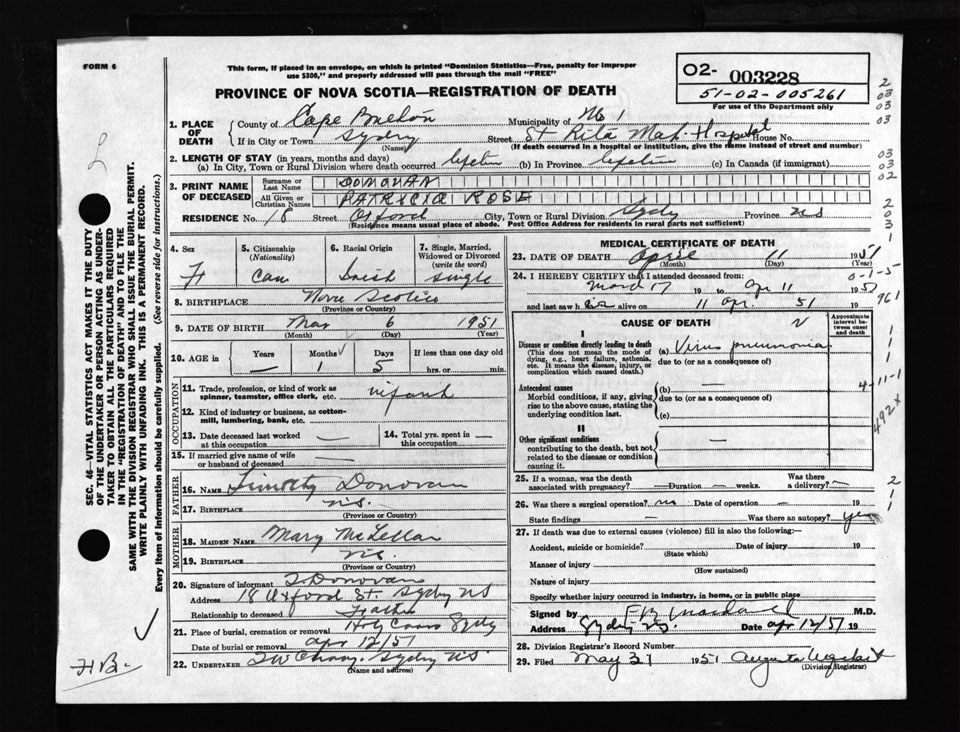 FORM 6
This form, if placed in an envelope, on which is printed "Dominion Statistics—Free, penalty for improper
use $300," and properly addressed will pass through the mail "FREE"
PROVINCE OF NOVA SCOTIA—REGISTRATION OF DEATH
02- 003228
51-02-005261
For use of the Department only
1. PLACE OF DEATH
County of Cape Breton Municipality of No 1
If in City or Town Sydney Street St Rita Mat. Hospital House No.
(Name) (If death occurred in a hospital or institution, give the name instead of street and number)
2. LENGTH OF STAY (in years, months and days)
(a) In City, Town or Rural Division where death occurred lifetime (b) In Province lifetime (c) In Canada (if immigrant)
3. PRINT NAME OF DECEASED
Surname or Last Name DONOVAN
All Given or Christian Names PATRICIA ROSE
RESIDENCE No. 18 Street Oxford City, Town or Rural Division Sydy Province NS
(Residence means usual place of abode. Post Office Address for residents in rural parts not sufficient)
4. Sex F
5. Citizenship (Nationality) Can
6. Racial Origin Irish
7. Single, Married, Widowed or Divorced (write the word) single
8. BIRTHPLACE Nova Scotia
(Province or Country)
9. DATE OF BIRTH Mar 6 1951
(Month) (Day) (Year)
10. AGE in Years — Months 1 Days 5 If less than one day old hrs. or min.
OCCUPATION
11. Trade, profession, or kind of work as spinner, teamster, office clerk, etc. infant
12. Kind of industry or business, as cotton-mill, lumbering, bank, etc.
13. Date deceased last worked at this occupation —
14. Total yrs. spent in this occupation —
15. If married give name of wife or husband of deceased —
FATHER
16. NAME Timothy Donovan
17. BIRTHPLACE N.S.
(Province or Country)
MOTHER
18. MAIDEN NAME Mary McLellan
19. BIRTHPLACE N.S.
(Province or Country)
20. Signature of informant T Donovan
Address 18 Oxford St. Sydny NS
Relationship to deceased Father
21. Place of burial, cremation or removal Holy Cross Sydny
Date of burial or removal apr 12/51
22. UNDERTAKER Sydny NS.
(Name and address)
MEDICAL CERTIFICATE OF DEATH
23. DATE OF DEATH April 11 1951
(Month) (Day) (Year)
24. I HEREBY CERTIFY that I attended deceased from:
March 17 19 to Apr 11 1951
and last saw her alive on 11 apr. 51
CAUSE OF DEATH
Approximate interval between onset and death
I
Disease or condition directly leading to death (a) Virus pneumonia
(This does not mean the mode of dying, e.g., heart failure, asthenia, etc. It means the disease, injury, or complication which caused death.) due to (or as a consequence of)
Antecedent causes (b) —
Morbid conditions, if any, giving rise to the above cause, stating the underlying condition last. due to (or as a consequence of)
(c)
II
Other significant conditions —
contributing to the death, but not related to the disease or condition causing it.
25. If a woman, was the death associated with pregnancy? — Duration — weeks. Was there a delivery? —
26. Was there a surgical operation? no Date of operation — 19
State findings — Was there an autopsy? yes
27. If death was due to external causes (violence) fill in also the following:—
Accident, suicide or homicide? Date of injury 19
(State which)
Manner of injury
(How sustained)
Nature of injury
Specify whether injury occurred in industry, in home, or in public place
Signed by M.D.
Address Sydny NS. Date apr 12/51 19
28. Division Registrar's Record Number
29. Filed May 31 1951 Augusta
(Division Registrar)
SEC. 46—VITAL STATISTICS ACT MAKES IT THE DUTY
OF THE UNDERTAKER OR PERSON ACTING AS UNDER-
TAKER TO OBTAIN ALL THE PARTICULARS REQUIRED
IN THE "REGISTRATION OF DEATH" AND TO FILE THE
SAME WITH THE DIVISION REGISTRAR WHO SHALL ISSUE THE BURIAL PERMIT.
WRITE PLAINLY WITH UNFADING INK. THIS IS A PERMANENT RECORD.
Every item of Information should be carefully supplied. (See reverse side for instructions.)
2
03
03
03
03
03
02
2
0
3
1
0-1-5
961
1
1
1
4-11-1
492x
2
1
1